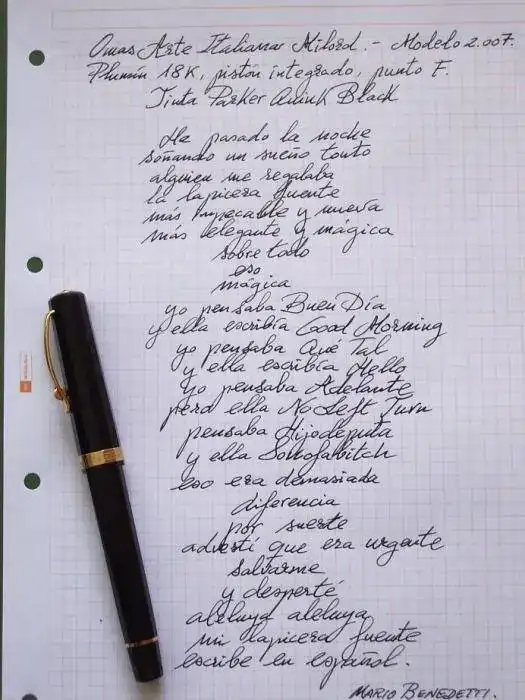 Omas Arte Italiana Milord. - Modelo 2.007.
Plumín 18K, pistón integrado, punto F.
Tinta Parker Quink Black
He pasado la noche
soñando un sueño tonto
alguien me regalaba
la lapicera fuente
más impecable y nueva
más elegante y mágica
sobre todo
eso
mágica
yo pensaba Buen Día
y ella escribía Good Morning
yo pensaba Qué Tal
y ella escribía Hello
yo pensaba Adelante
pero ella No Left Turn
pensaba Hijodeputa
y ella Sonofabitch
eso era demasiada
diferencia
por suerte
advertí que era urgente
salvarme
y desperté
aleluya aleluya
mi lapicera fuente
escribe en español.
MARIO BENEDETTI.